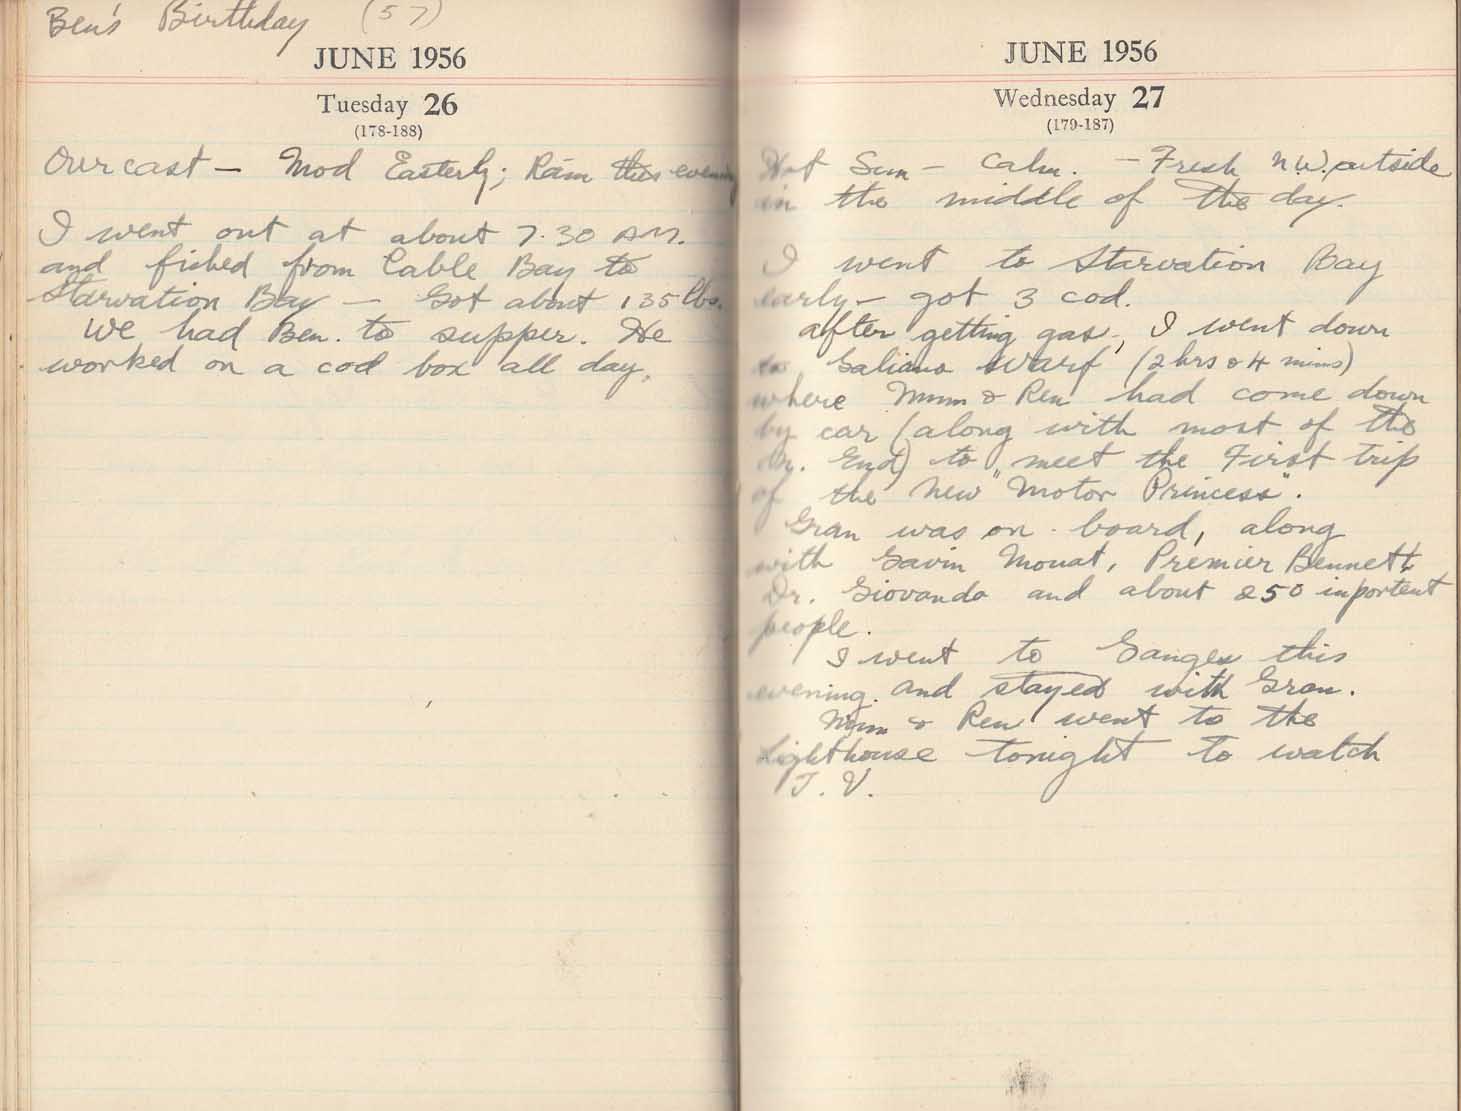 Ben's Birthday (57)
JUNE 1956
Tuesday 26
(178-188)
Overcast – Mod Easterly; Rain this evening
I went out at about 7.30 AM.
and fished from Cable Bay to
Starvation Bay – Got about 135 lbs.
We had Ben. to supper. He
worked on a cod box all day.
JUNE 1956
Wednesday 27
(179-187)
Hot Sun – Calm. – Fresh N.W. outside
in the middle of the day.
I went to Starvation Bay
early – got 3 cod.
after getting gas, I went down
to Galiano Warf (2 hrs & 4 mins)
where Mum & Ren had come down
by car (along with most of the
End) to meet the First trip
of the New "Motor Princess".
Gran was on board, along
with Gavin Mouat, Premier Bennett,
Dr. Giovando and about 250 inportent
people.
I went to Ganges this
evening and stayed with Gran.
Mum & Ren went to the
Lighthouse tonight to watch
T.V.